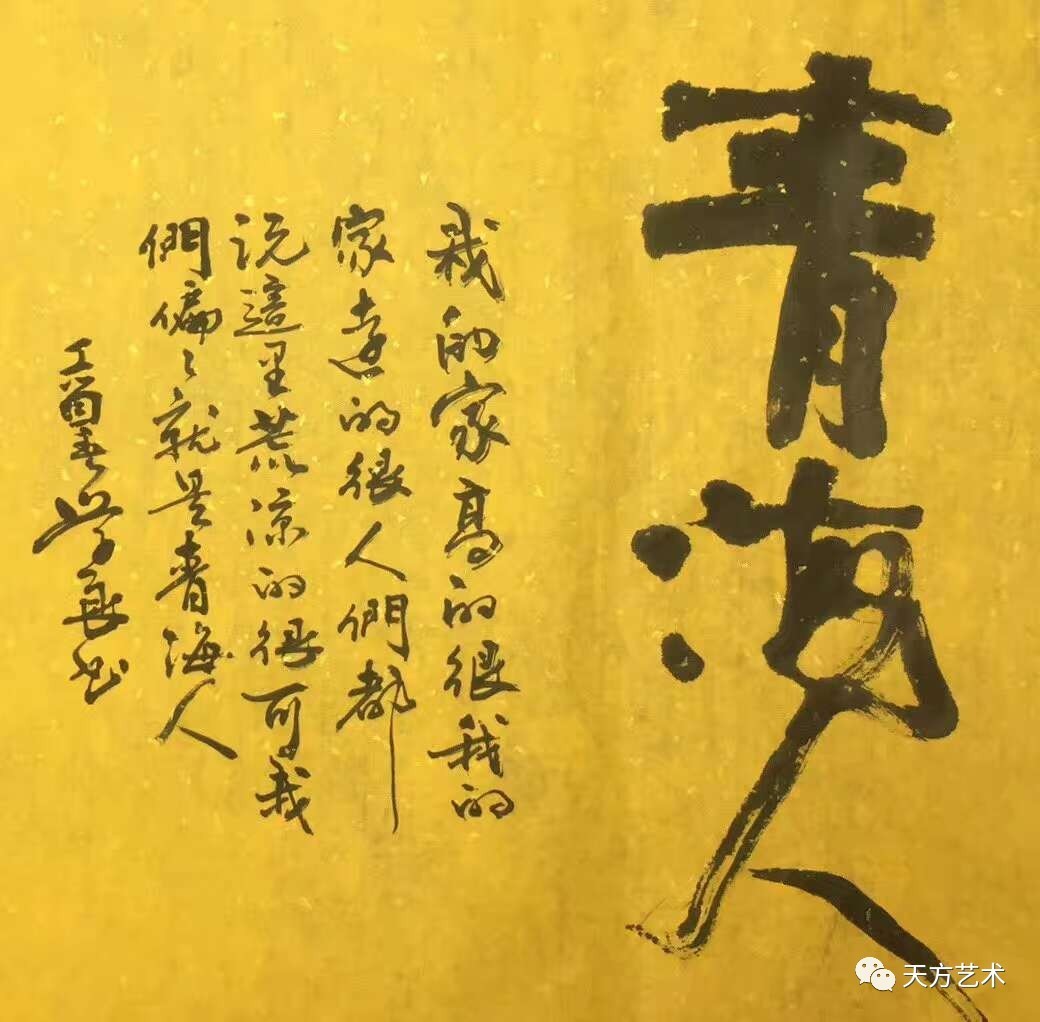 青海人
我的家高的很我的
家遠的很人們都
说這里荒凉的很可我
們偏々就是青海人
丁酉 书
天方艺术